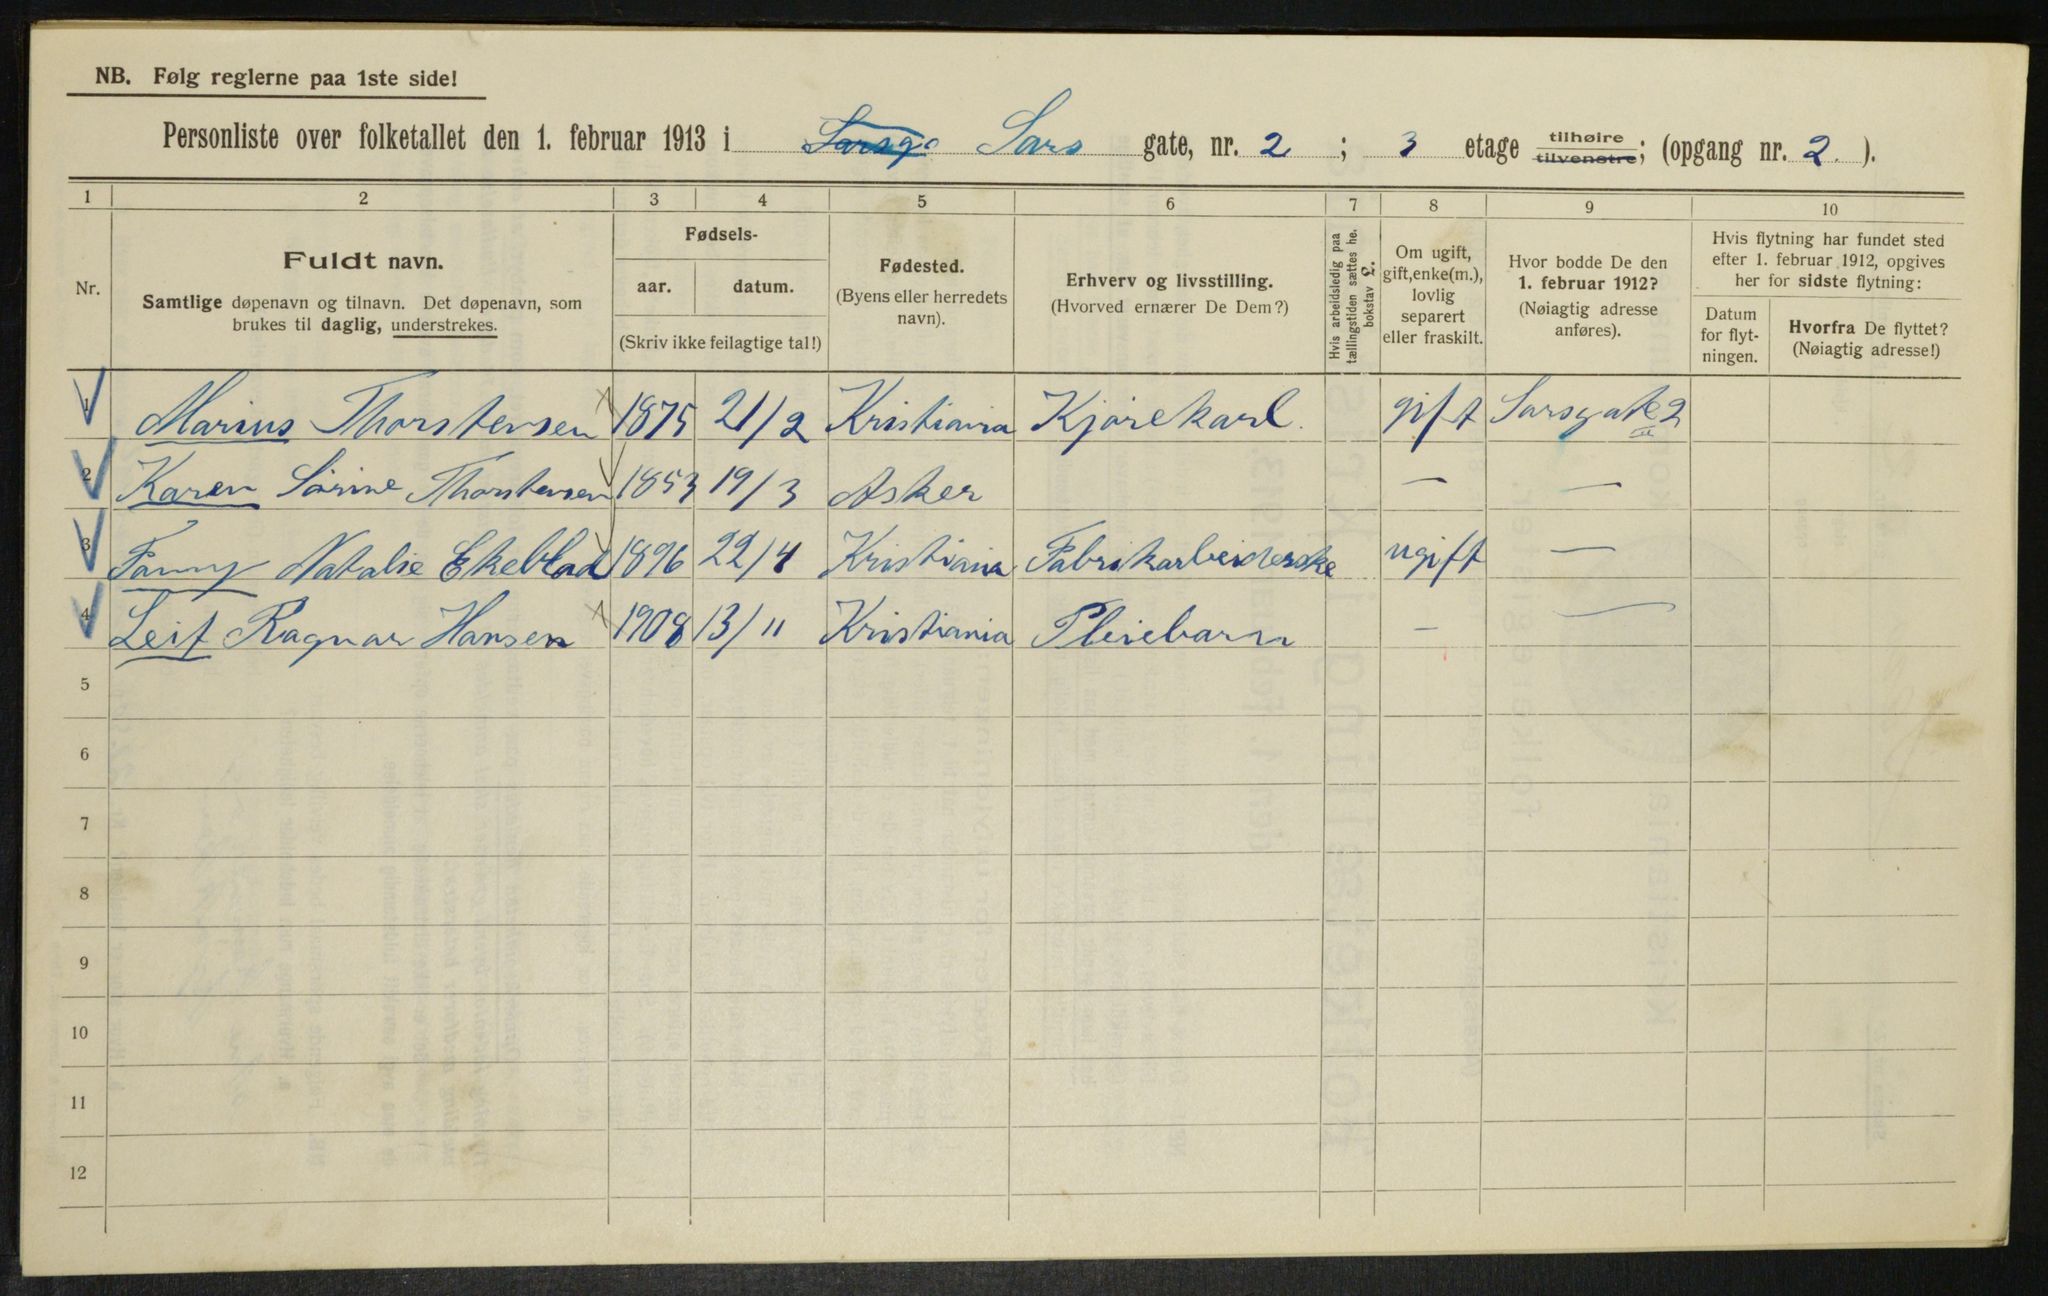 NB. Følg reglerne paa 1ste side!
Personliste over folketallet den 1. februar 1913 i Sarsgt Sars gate, nr. 2 ; 3 etage tilhøire tilvenstre; (opgang nr. 2 ).
1 2 3 4 5 6 7 8 9 10
Nr.
Fuldt navn.
Samtlige døpenavn og tilnavn. Det døpenavn, som
brukes til daglig, understrekes.
Fødsels-
aar. datum.
(Skriv ikke feilagtige tal!)
Fødested.
(Byens eller herredets
navn).
Erhverv og livsstilling.
(Hvorved ernærer De Dem?)
Hvis arbeidsledig paa
tællingstiden sættes he.
bokstav L.
Om ugift,
gift, enke(m.),
lovlig
separert
eller fraskilt.
Hvor bodde De den
1. februar 1912?
(Nøiagtig adresse
anføres).
Hvis flytning har fundet sted
efter 1. februar 1912, opgives
her for sidste flytning:
Datum
for flyt-
ningen.
Hvorfra De flyttet?
(Nøiagtig adresse!)
1 Marius Thorstensen 1875 21/2 Kristiania Kjørekarl. gift Sarsgate 2
2 Karen Sørine Thorstensen 1853 19/3 Asker — —
3 Fanny Natalie Ekeblad 1896 22/4 Kristiania Fabrikarbeiderske ugift —
4 Leif Ragnar Hansen 1908 13/11 Kristiania Pleiebarn — —
5
6
7
8
9
10
11
12